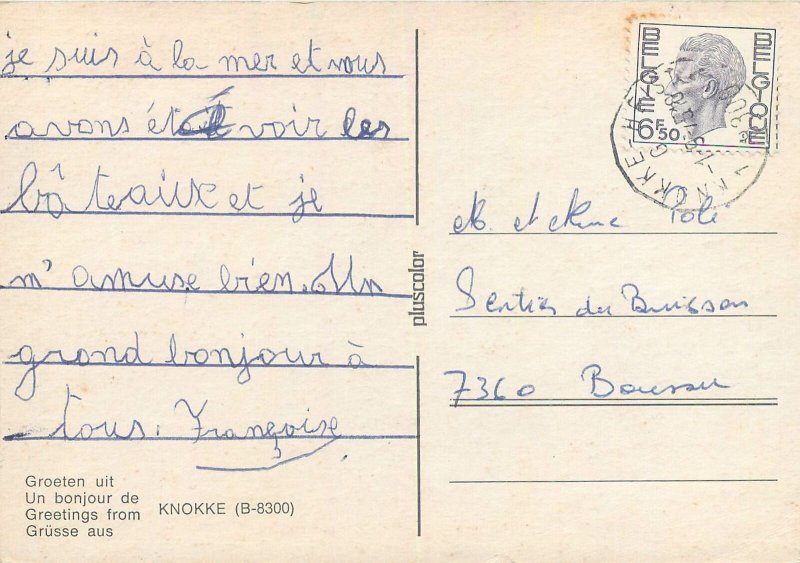 je suis à la mer et vous
avons été voir les
bâteaux et je
m'amuse bien. Un
grand bonjour à
tous. Françoise
Groeten uit
Un bonjour de
Greetings from
Grüsse aus
KNOKKE (B-8300)
pluscolor
BELGIE
BELGIQUE
6F50
KNOKKE
M. et Mme
Sentier du Buisson
7360 Boussu